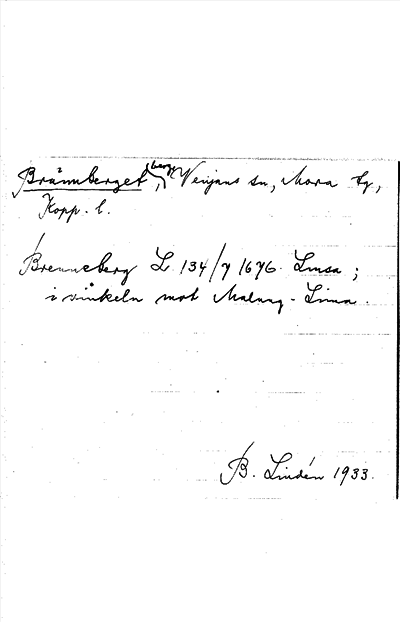 Brännberget, (berg) Venjans sn, Mora tg,
Kopp. l.
Brenneberg L 134/7 1676 Lmsa ;
i vinkeln mot Malung - Lima .
B. Lindén 1933.